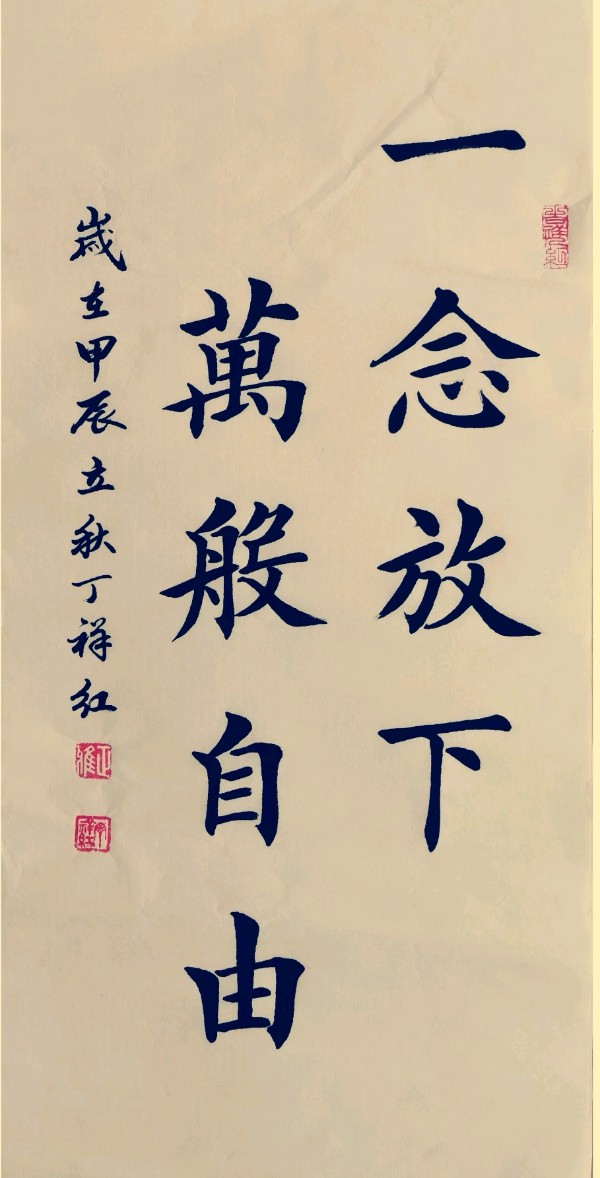 一念放下
萬般自由
歲在甲辰立秋丁祥紅